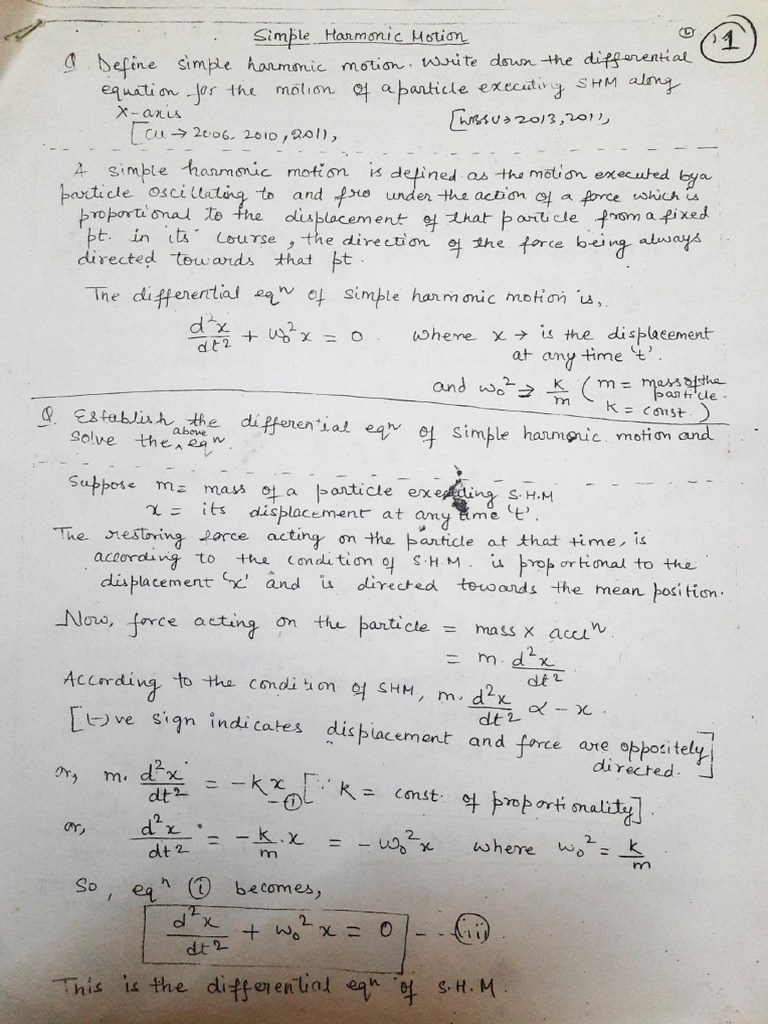 Simple Harmonic Motion
1
Q. Define simple harmonic motion. Write down the differential
equation for the motion of a particle executing SHM along
x-axis
[CU → 2006, 2010, 2011,
[WBSU → 2013, 2011,
A simple harmonic motion is defined as the motion executed by a
particle oscillating to and fro under the action of a force which is
proportional to the displacement of that particle from a fixed
pt. in its course, the direction of the force being always
directed towards that pt.
The differential eqⁿ of simple harmonic motion is,
d²x/dt² + ω₀²x = 0. where x → is the displacement
at any time 't'.
and ω₀² → k/m (m = mass of the particle. k = const.)
Q. Establish the differential eqⁿ of simple harmonic motion and
solve the above eqⁿ.
Suppose m = mass of a particle executing S.H.M
x = its displacement at any time 't'.
The restoring force acting on the particle at that time, is
according to the condition of S.H.M. is proportional to the
displacement 'x' and is directed towards the mean position.
Now, force acting on the particle = mass × accⁿ
= m. d²x/dt²
According to the condition of SHM, m. d²x/dt² ∝ - x.
[(-)ve sign indicates displacement and force are oppositely directed.]
or, m. d²x/dt² = -kx —① [∵ k = const. of proportionality].
or, d²x/dt² = -k/m . x = -ω₀²x where ω₀² = k/m
So, eqⁿ ① becomes,
d²x/dt² + ω₀²x = 0 --- (iii)
This is the differential eqⁿ of S.H.M.